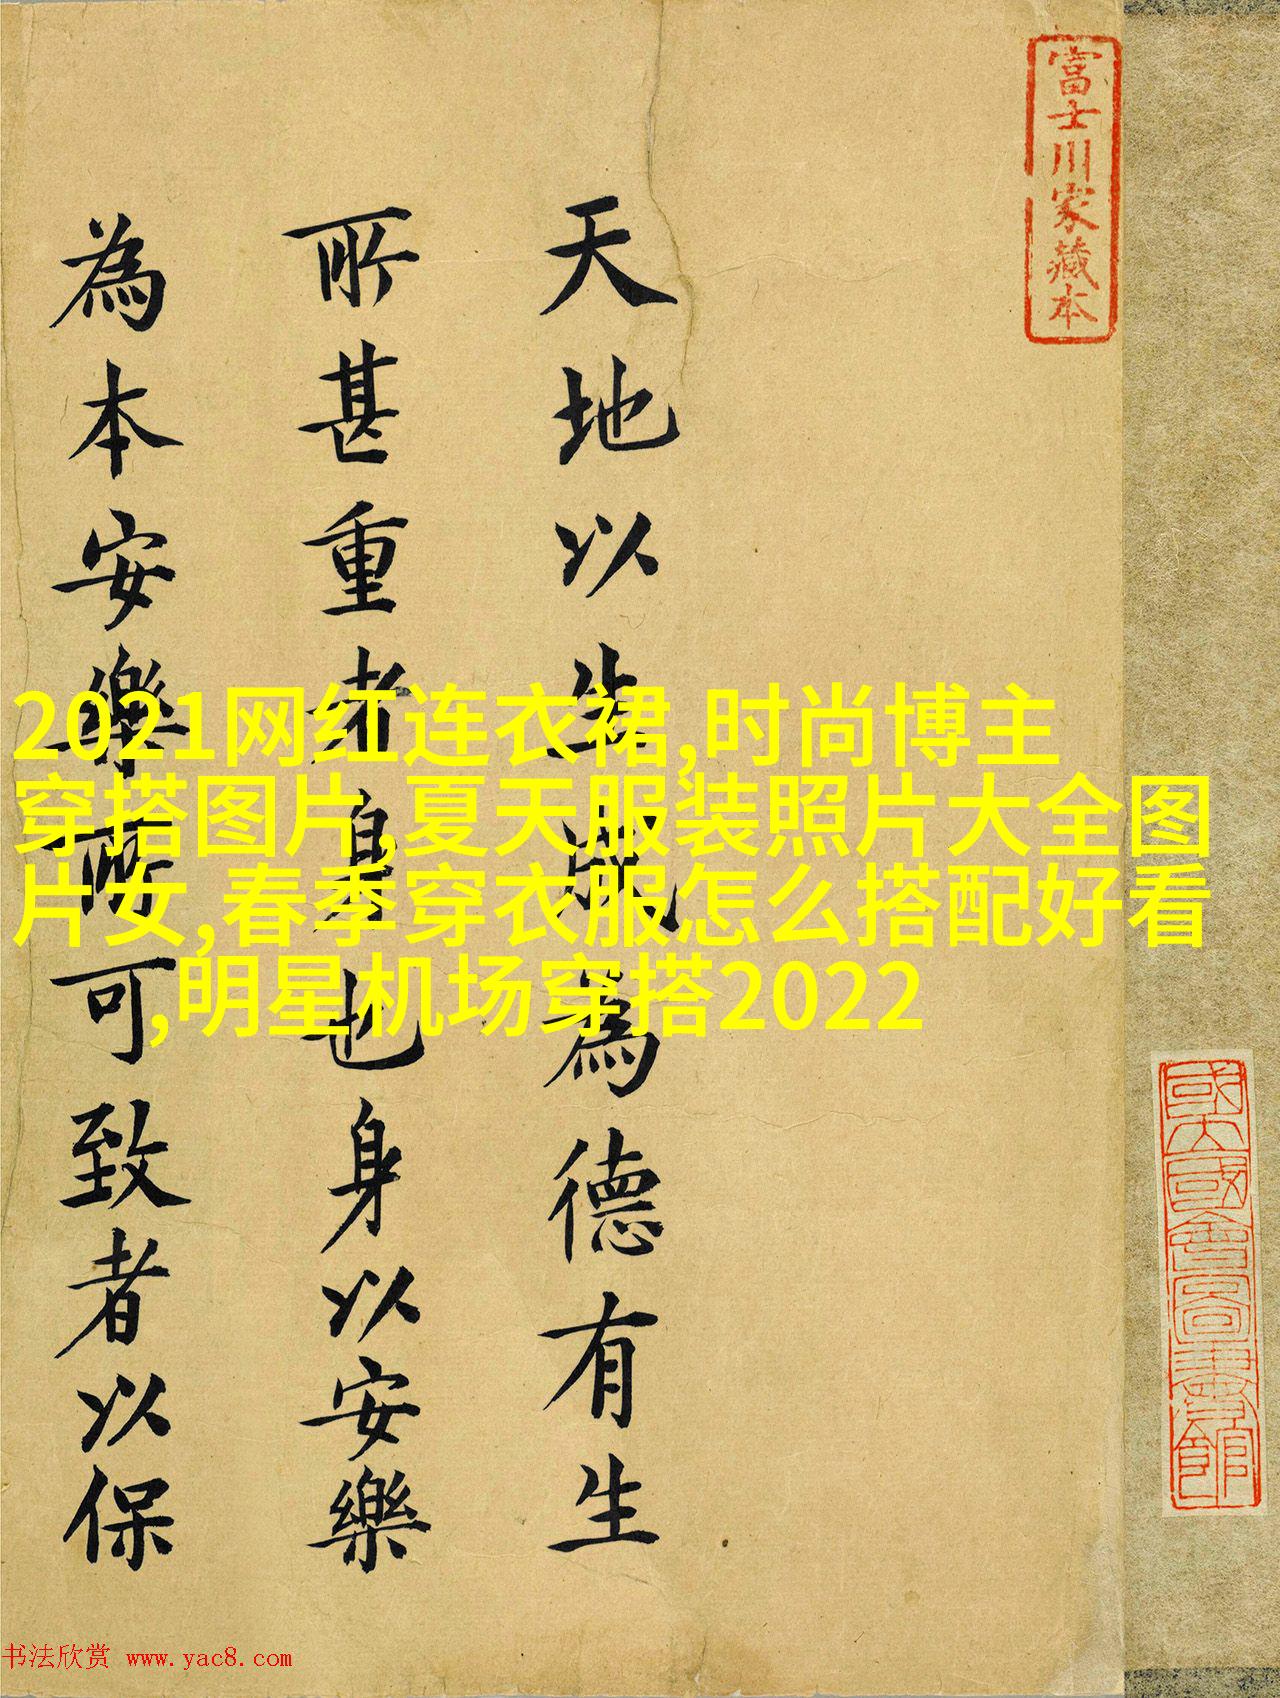 富士川家藏本
國立國會圖書館
天地以生成為德有生
所甚重者身也身以安樂
為本安樂所可致者以保
2021网红连衣裙,时尚博主
穿搭图片,夏天服装照片大全图
片女,春季穿衣服怎么搭配好看
,明星机场穿搭2022
书法欣赏 www.yac8.com